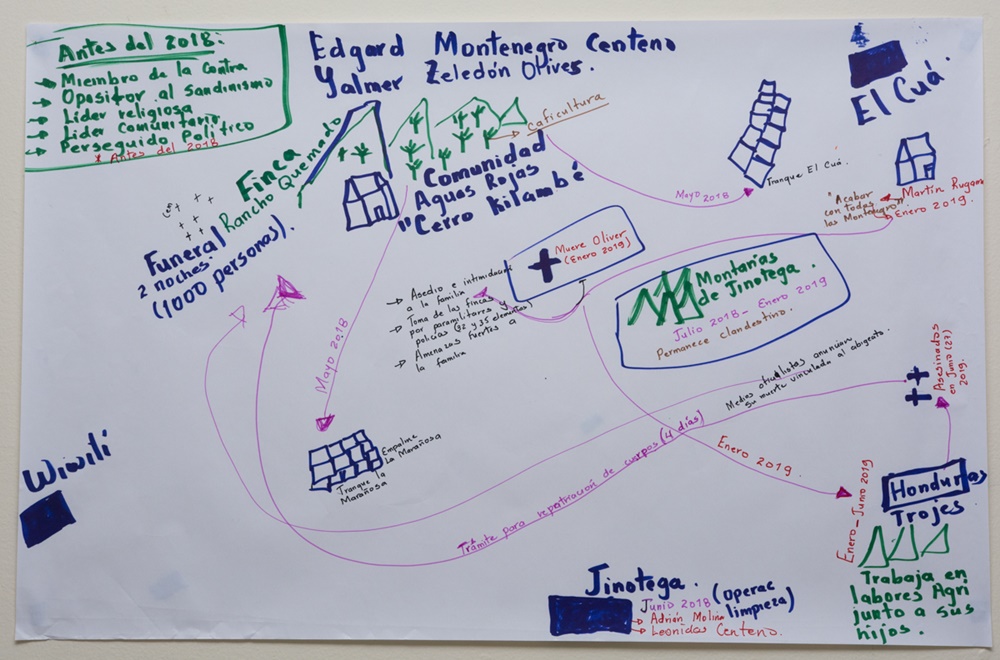 Antes del 2018:
→ Miembro de la Contra
→ Opositor al Sandinismo
→ Líder religiosa
→ Líder comunitario
→ Perseguido Político
* Antes del 2018
Edgard Montenegro Centeno
Yalmer Zeledón Olivas.
El Cuá.
Caficultura
Finca
Rancho Quemado
Comunidad
Aguas Rojas
"Cerro Kilambé"
Mayo 2018
Tranque El Cuá.
"Acabar
con todos
los Montenegro"
Martín Rugama
Enero 2019.
Funeral
2 noches.
(1000 personas).
Muere Oliver
(Enero 2019)
→ Asedio e intimidación
a la familia
→ Toma de las fincas
por paramilitares y
policías (32 y 35 elementos)
→ Amenazas fuertes a
la familia
Montañas
de Jinotega.
Julio 2018- Enero 2019
Permanece clandestino.
Mayo 2018
Empalme
La Marañosa
Tranque la
Marañosa
Medios oficialistas anuncian
su muerte vinculada al abigeato.
Asesinados
en Junio (27)
2019.
Wiwilí
Trámite para repatriación de cuerpos (4 días)
Enero 2019
Enero-Junio 2019
Honduras
Trojes
Trabaja en
labores Agri
junto a sus
hijos.
Jinotega.
Junio 2018 (Operac
limpieza)
→ Adrián Molina
→ Leonidas Centeno.